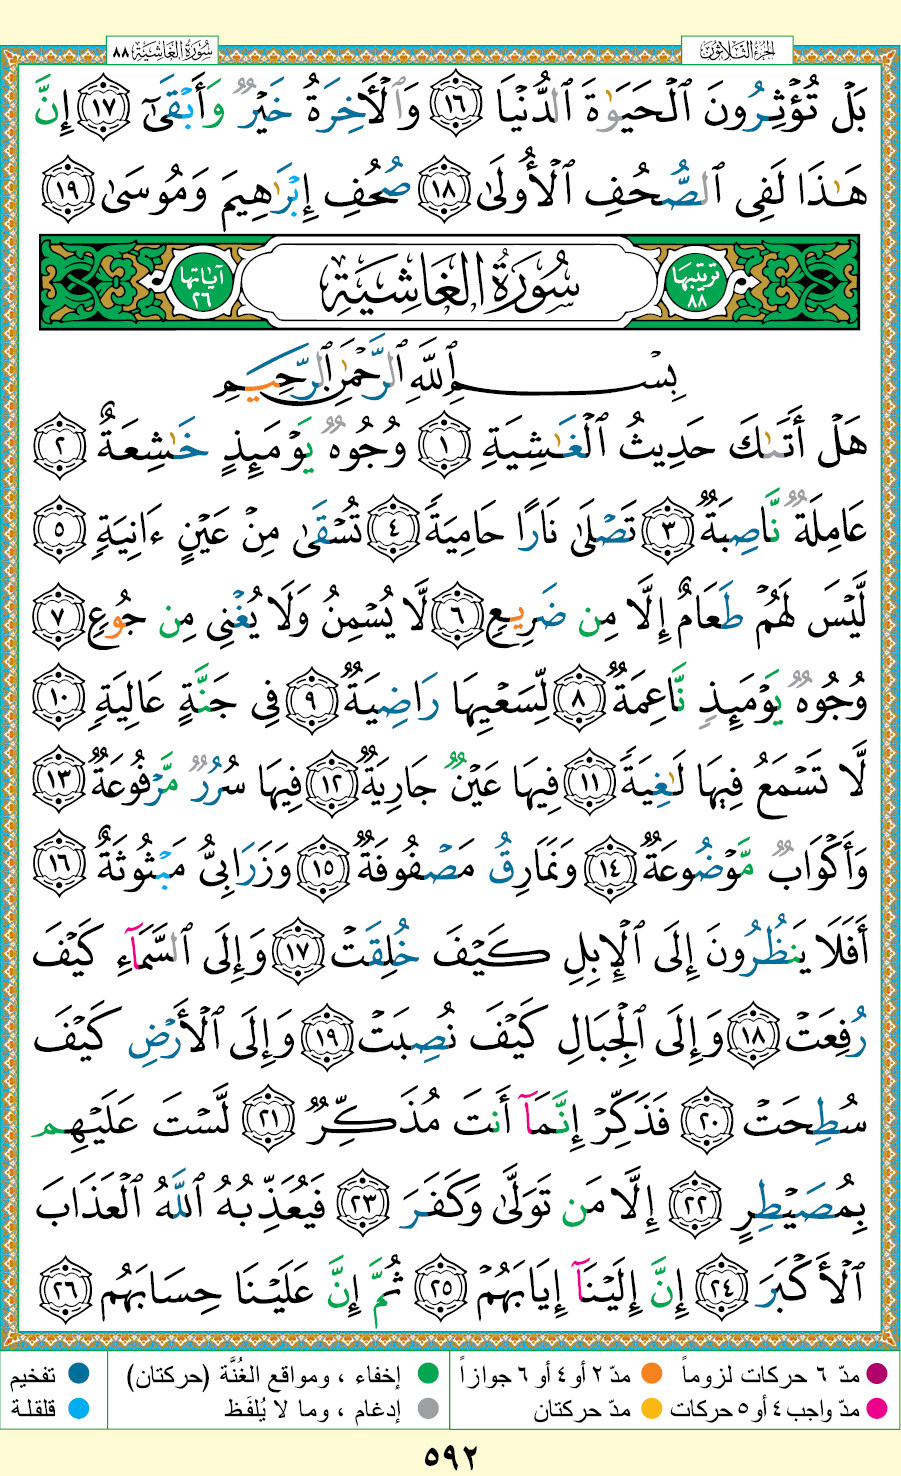 الجزء الثلاثون
سورة الغاشية ٨٨
بَلْ تُؤْثِرُونَ ٱلْحَيَوٰةَ ٱلدُّنْيَا ١٦ وَٱلْأَخِرَةُ خَيْرٌ وَأَبْقَىٰٓ ١٧ إِنَّ
هَـٰذَا لَفِى ٱلصُّحُفِ ٱلْأُولَىٰ ١٨ صُحُفِ إِبْرَٰهِيمَ وَمُوسَىٰ ١٩
ترتيبها ٨٨ سُورَةُ الغَاشِيَةِ آياتها ٢٦
بِسْمِ ٱللَّهِ ٱلرَّحْمَٰنِ ٱلرَّحِيمِ
هَلْ أَتَىٰكَ حَدِيثُ ٱلْغَـٰشِيَةِ ١ وُجُوهٌ يَوْمَئِذٍ خَـٰشِعَةٌ ٢
عَامِلَةٌ نَّاصِبَةٌ ٣ تَصْلَىٰ نَارًا حَامِيَةً ٤ تُسْقَىٰ مِنْ عَيْنٍ ءَانِيَةٍ ٥
لَّيْسَ لَهُمْ طَعَامٌ إِلَّا مِن ضَرِيعٍ ٦ لَّا يُسْمِنُ وَلَا يُغْنِى مِن جُوعٍ ٧
وُجُوهٌ يَوْمَئِذٍ نَّاعِمَةٌ ٨ لِّسَعْيِهَا رَاضِيَةٌ ٩ فِى جَنَّةٍ عَالِيَةٍ ١٠
لَّا تَسْمَعُ فِيهَا لَـٰغِيَةً ١١ فِيهَا عَيْنٌ جَارِيَةٌ ١٢ فِيهَا سُرُرٌ مَّرْفُوعَةٌ ١٣
وَأَكْوَابٌ مَّوْضُوعَةٌ ١٤ وَنَمَارِقُ مَصْفُوفَةٌ ١٥ وَزَرَابِىُّ مَبْثُوثَةٌ ١٦
أَفَلَا يَنظُرُونَ إِلَى ٱلْإِبِلِ كَيْفَ خُلِقَتْ ١٧ وَإِلَى ٱلسَّمَآءِ كَيْفَ
رُفِعَتْ ١٨ وَإِلَى ٱلْجِبَالِ كَيْفَ نُصِبَتْ ١٩ وَإِلَى ٱلْأَرْضِ كَيْفَ
سُطِحَتْ ٢٠ فَذَكِّرْ إِنَّمَآ أَنتَ مُذَكِّرٌ ٢١ لَّسْتَ عَلَيْهِم
بِمُصَيْطِرٍ ٢٢ إِلَّا مَن تَوَلَّىٰ وَكَفَرَ ٢٣ فَيُعَذِّبُهُ ٱللَّهُ ٱلْعَذَابَ
ٱلْأَكْبَرَ ٢٤ إِنَّ إِلَيْنَآ إِيَابَهُمْ ٢٥ ثُمَّ إِنَّ عَلَيْنَا حِسَابَهُم ٢٦
مدّ ٦ حركات لزوماً مدّ ٢ أو ٤ أو ٦ جوازاً إخفاء ، ومواقع الغُنَّة (حركتان) تفخيم
مدّ واجب ٤ أو ٥ حركات مدّ حركتان إدغام ، وما لا يُلفَظ قلقلة
٥٩٢